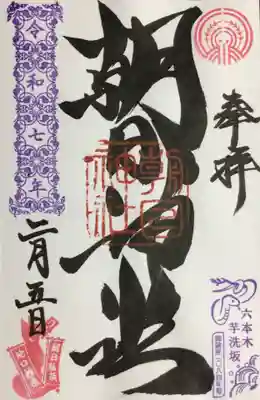 奉拝
朝日神社
朝日神社
六本木
芋洗坂
令和七年
二月五日